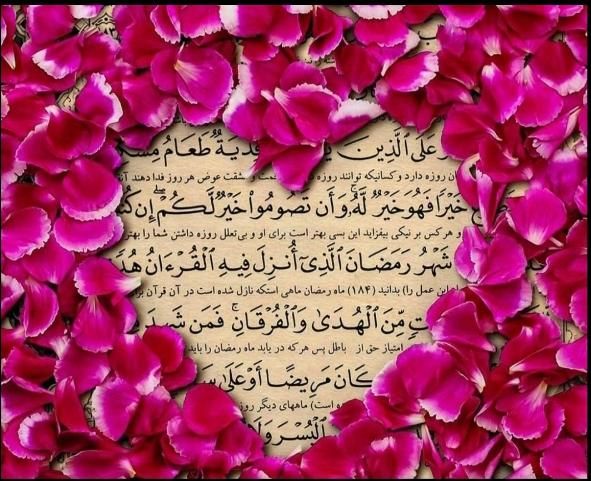 عَلَى ٱلَّذِينَ فِدْيَةٌ طَعَامُ
روزه دارد و کسانیکه توانند روزه مشقت عوض هر روز فدا دهند
خَيْرًا فَهُوَ خَيْرٌ لَّهُۥ وَأَن تَصُومُوا۟ خَيْرٌ لَّكُمْ إِن
و هر کس بر نیکی بیفزاید این بسی بهتر است برای او و بی‌تعلل روزه داشتن شما را بهتر
شَهْرُ رَمَضَانَ ٱلَّذِىٓ أُنزِلَ فِيهِ ٱلْقُرْءَانُ
این عمل را) بدانید (۱۸۴) ماه رمضان ماهی استکه نازل شده است در آن قرآن
مِّنَ ٱلْهُدَىٰ وَٱلْفُرْقَانِ فَمَن شَهِدَ
امتیاز حق از باطل پس هر که در یابد ماه رمضان را باید
كَانَ مَرِيضًا أَوْ عَلَىٰ
شده است) ماههای دیگر
ٱلْيُسْرَ